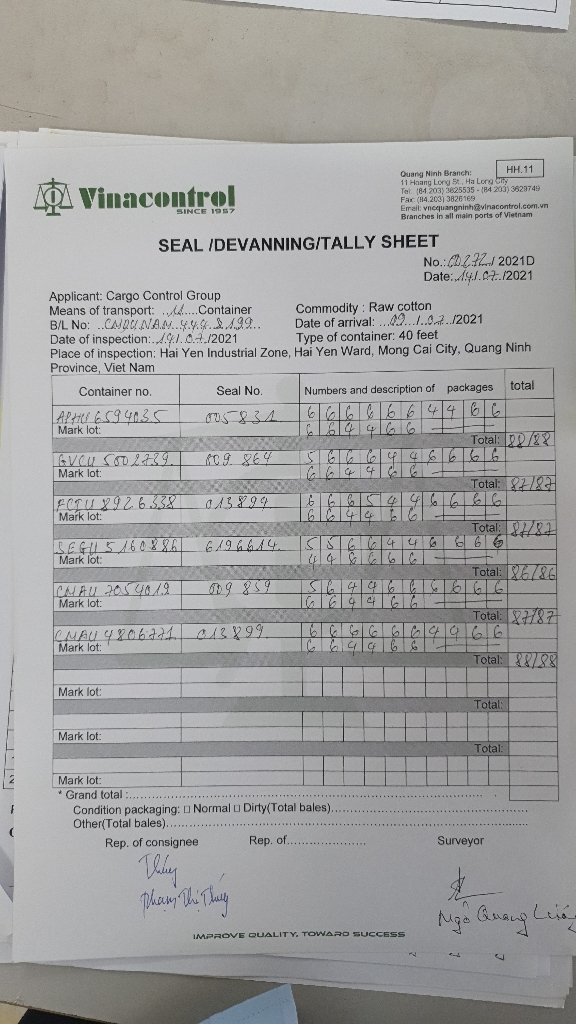 Vinacontrol
SINCE 1957
Quang Ninh Branch:
HH.11
11 Hoang Long St., Ha Long City
Tel: (84.203) 3825535 - (84.203) 3629749
Fax: (84.203) 3826169
Email: vncquangninh@vinacontrol.com.vn
Branches in all main ports of Vietnam
SEAL /DEVANNING/TALLY SHEET
No.: / 2021D
Date: 14/.07./2021
Applicant: Cargo Control Group
Means of transport: ..11....Container
Commodity : Raw cotton
B/L No:
Date of arrival: ...09...1.07../2021
Date of inspection: /2021
Type of container: 40 feet
Place of inspection: Hai Yen Industrial Zone, Hai Yen Ward, Mong Cai City, Quang Ninh
Province, Viet Nam
Container no. Seal No. Numbers and description of packages total
APHU 6594035 005831 6 6 6 6 6 6 4 4 6 6
Mark lot: 6 6 4 4 6 6
Total: 88/88
009 864 5 6 6 6 4 4 6 6 6 6
Mark lot: 6 6 4 4 6 6
Total: 87/87
FCIU 8926338 013899 6 6 6 5 4 4 6 6 6 6
Mark lot: 6 6 4 4 6 6
Total: 87/87
SEGU 5160886 6196614 5 5 6 6 4 4 6 6 6 6
Mark lot: 4 4 6 6 6 6
Total: 86/86
CMAU 7054019 009 859 5 6 4 4 6 6 6 6 6 6
Mark lot: 6 6 4 4 6 6
Total: 87/87
CMAU 4806771 013899 6 6 6 6 6 6 4 4 6 6
Mark lot: 6 6 4 4 6 6
Total: 88/88
Mark lot:
Total:
Mark lot:
Total:
Mark lot:
* Grand total :
Condition packaging: □ Normal □ Dirty(Total bales)
Other(Total bales)
Rep. of consignee Rep. of Surveyor
Thúy
Phạm Thị Thúy
Ngô Quang
IMPROVE QUALITY, TOWARD SUCCESS